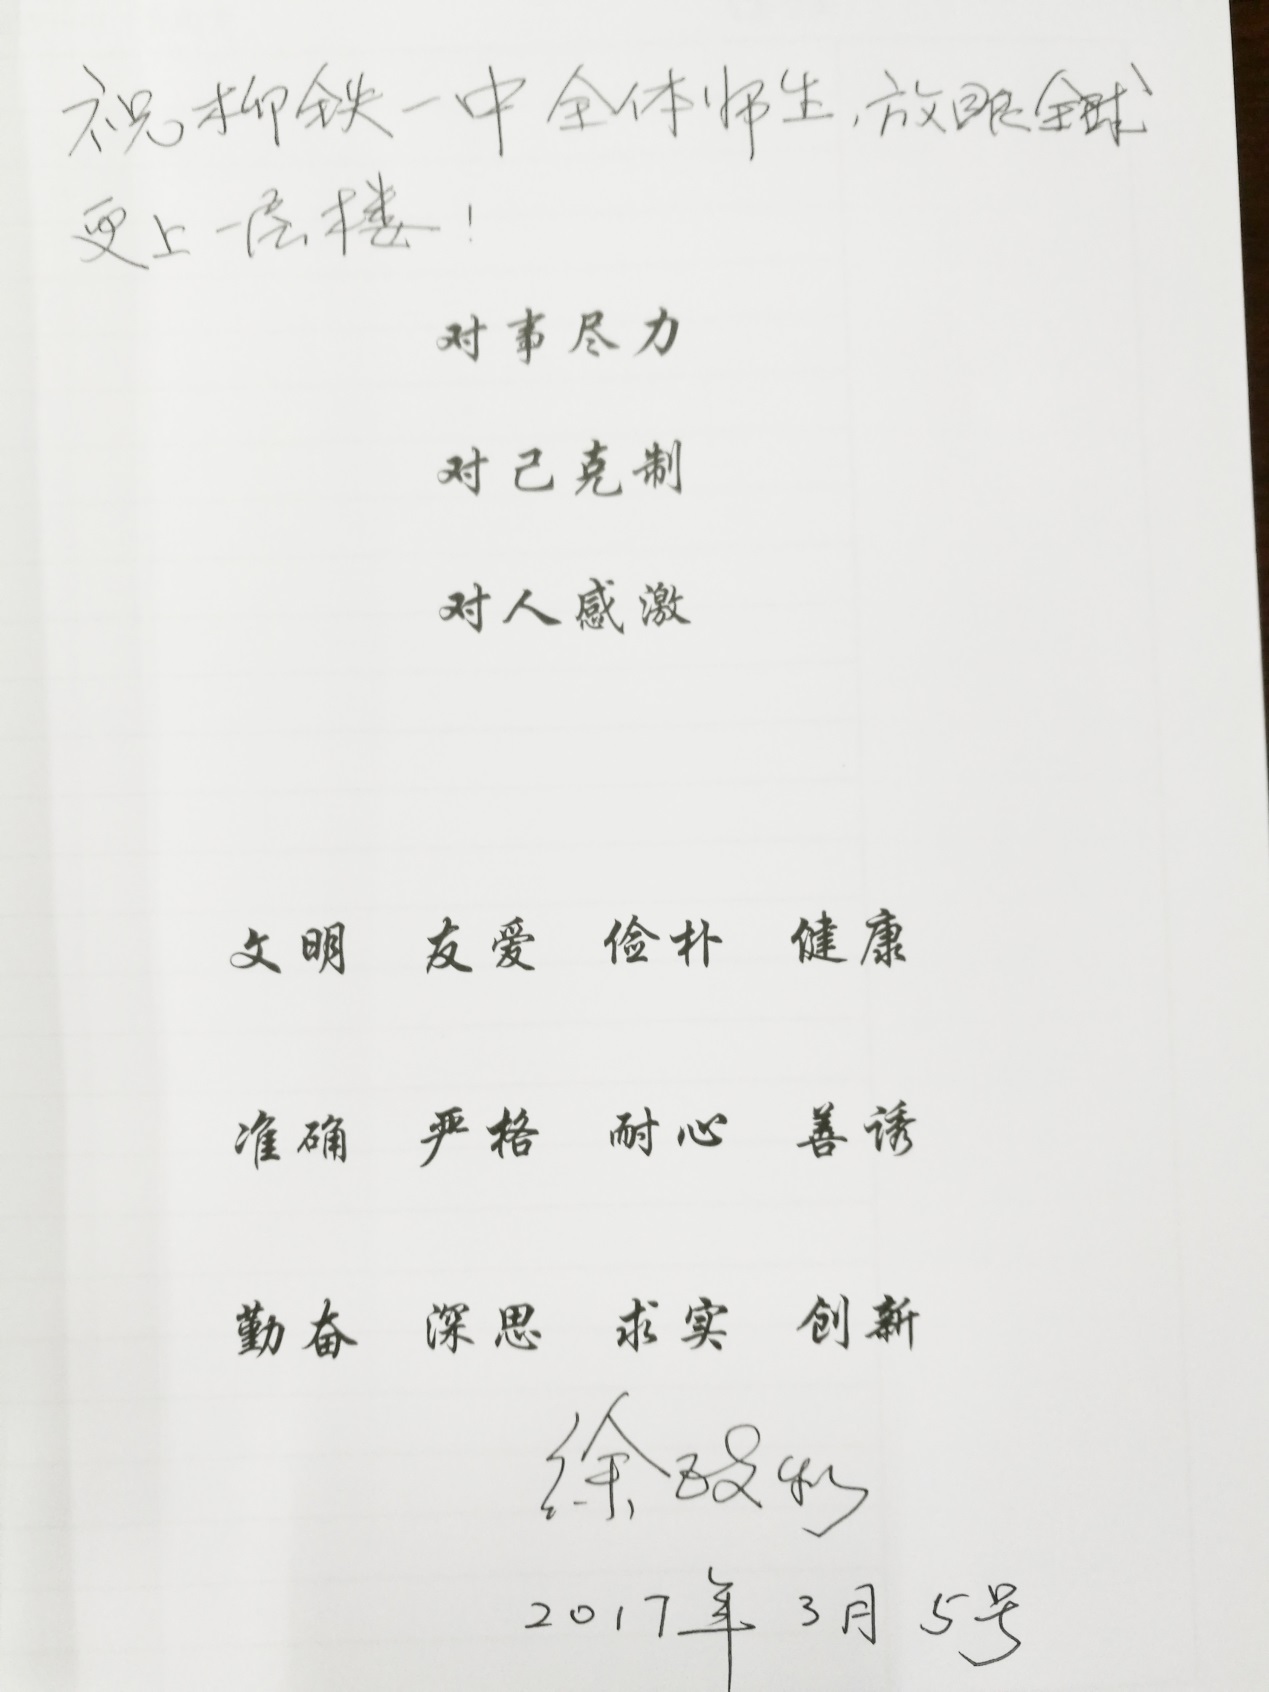 祝柳铁一中全体师生,放眼全球
更上一层楼!
对事尽力
对己克制
对人感激
文明 友爱 俭朴 健康
准确 严格 耐心 善诱
勤奋 深思 求实 创新
徐
2017年3月5号